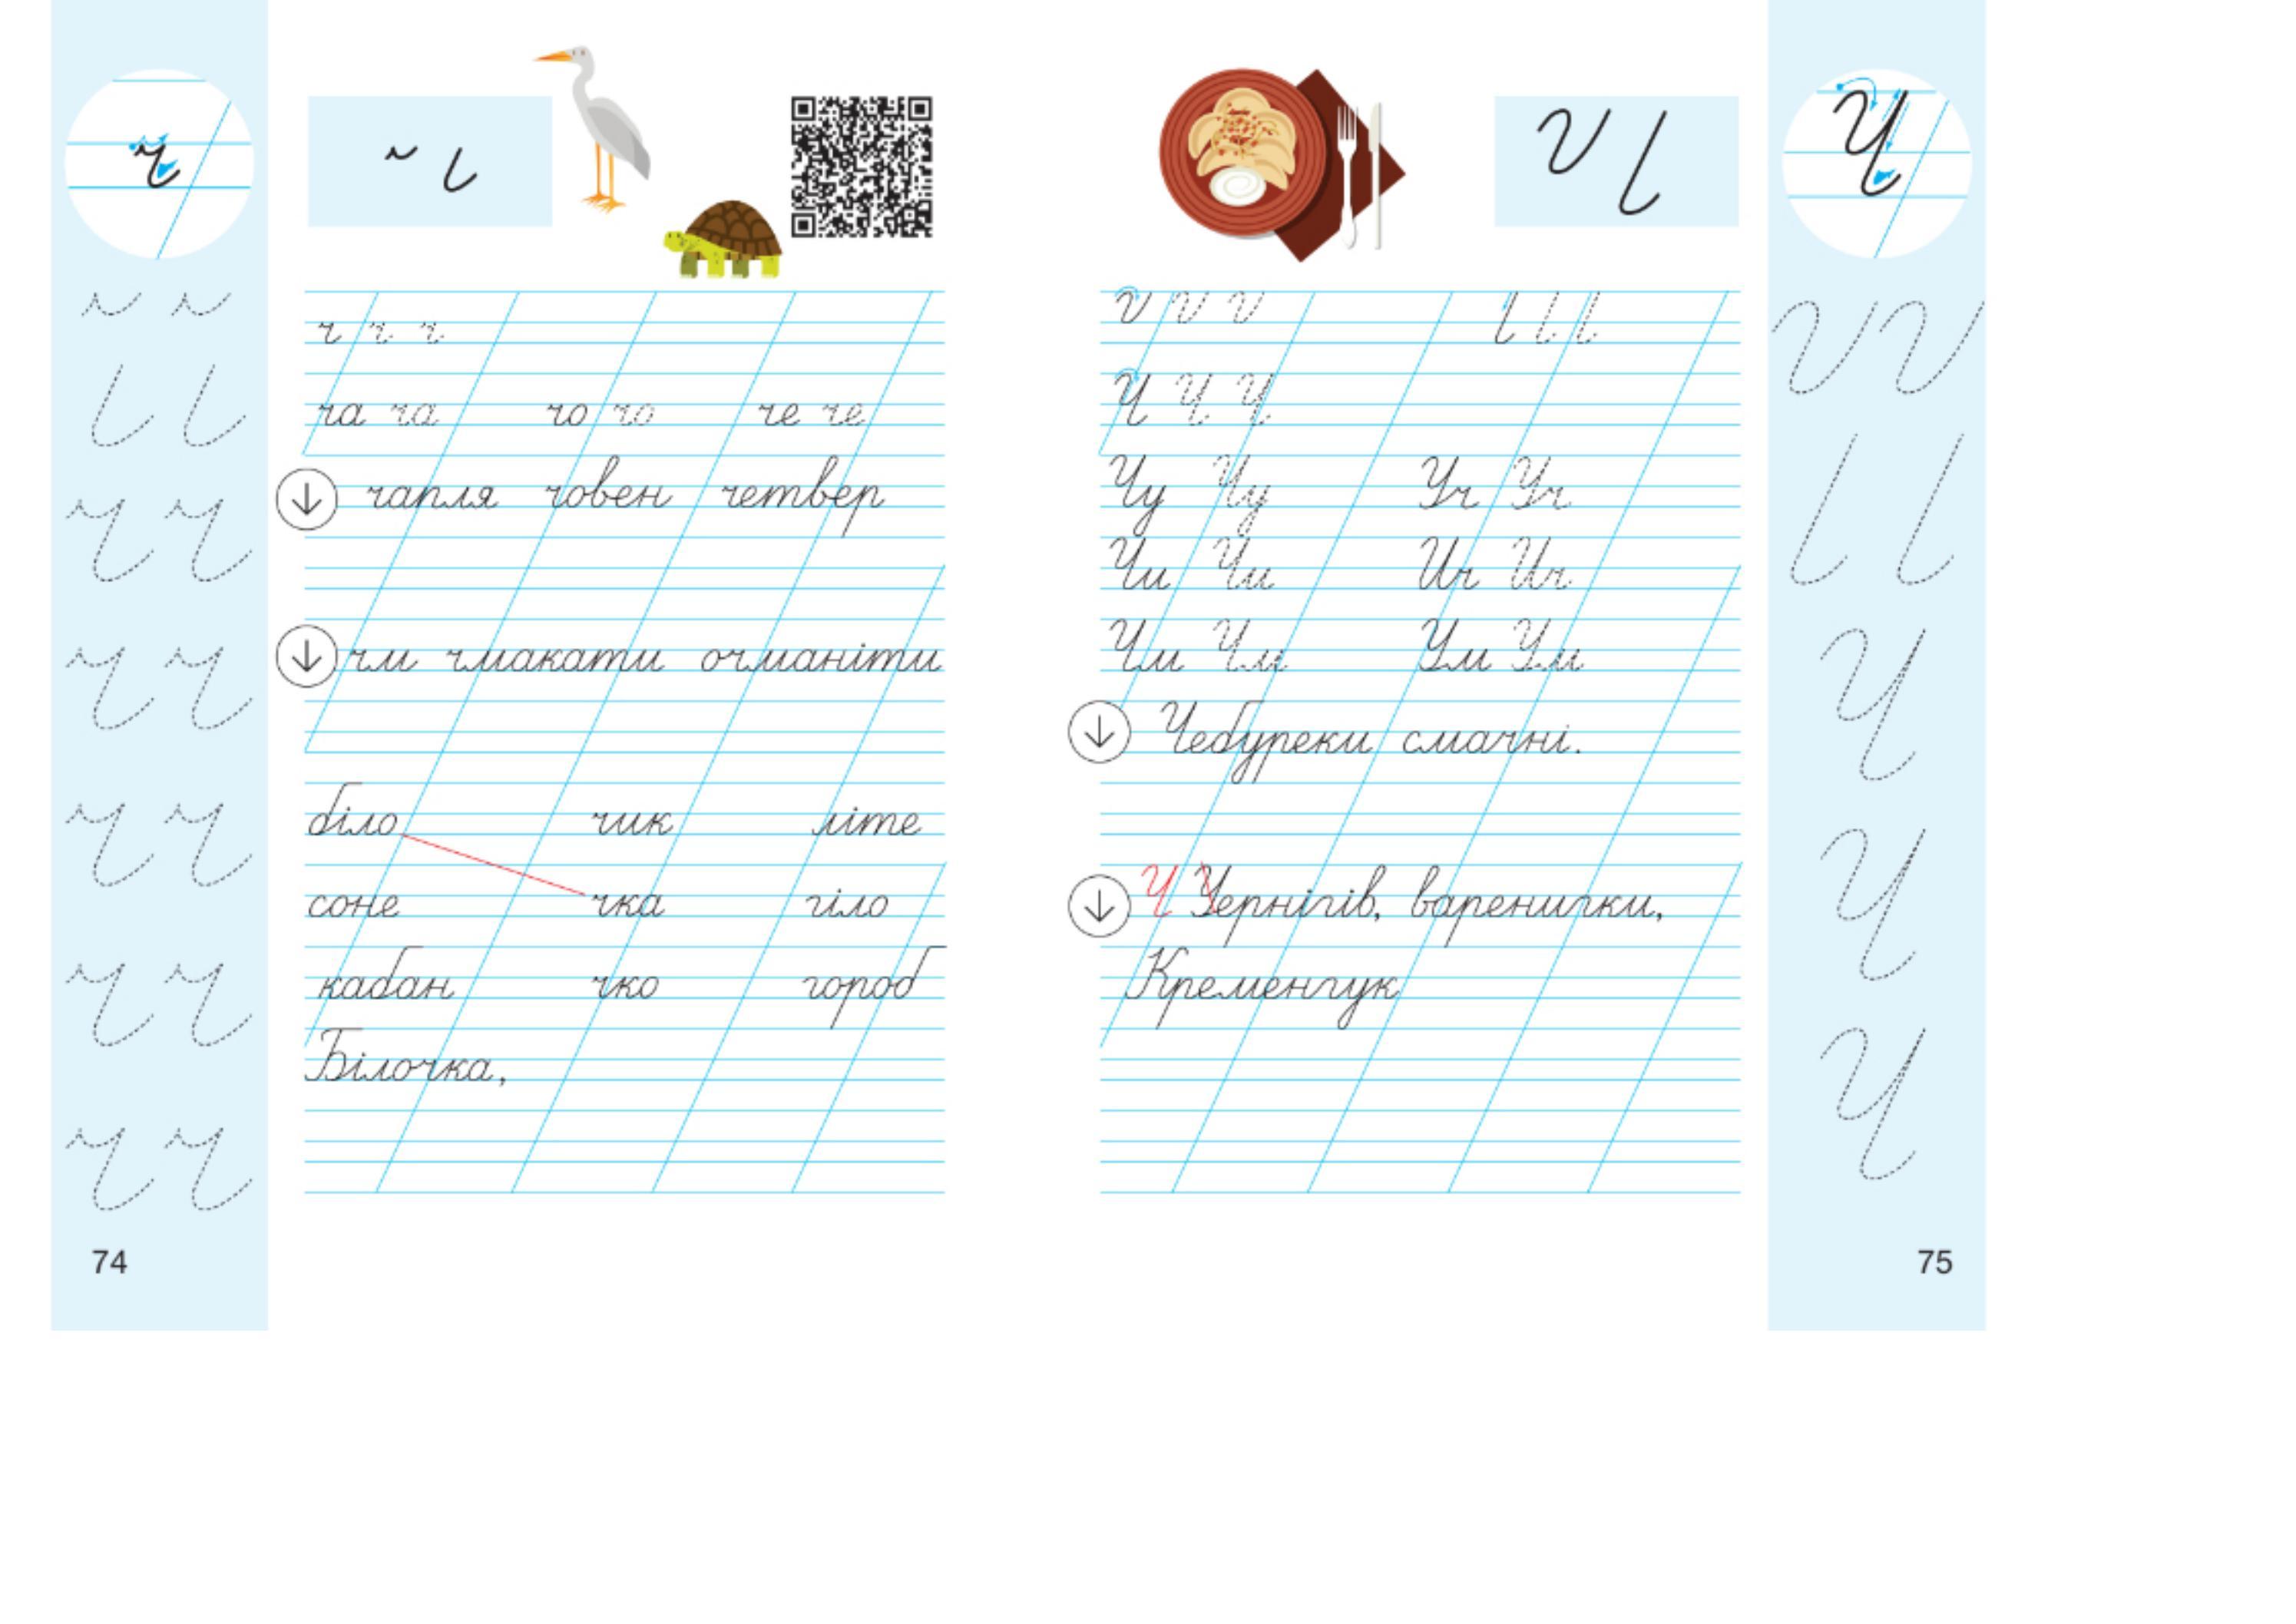 ч
ч ч ч
ча ча чо чо че че
чапля човен четвер
чм чмакати очманіти
біло чик літе
соне чка гіло
кабан чко город
Білочка,
ч ч
ч ч
ч ч
ч ч
ч ч
74
Ч
Ч Ч Ч
Чу Чу Уч Уч
Чи Чи Ич Ич
Чм Чм Ум Ум
Чебуреки смачні.
Ч Чернігів, варенички,
Кременчук
Ч
Ч
Ч
75